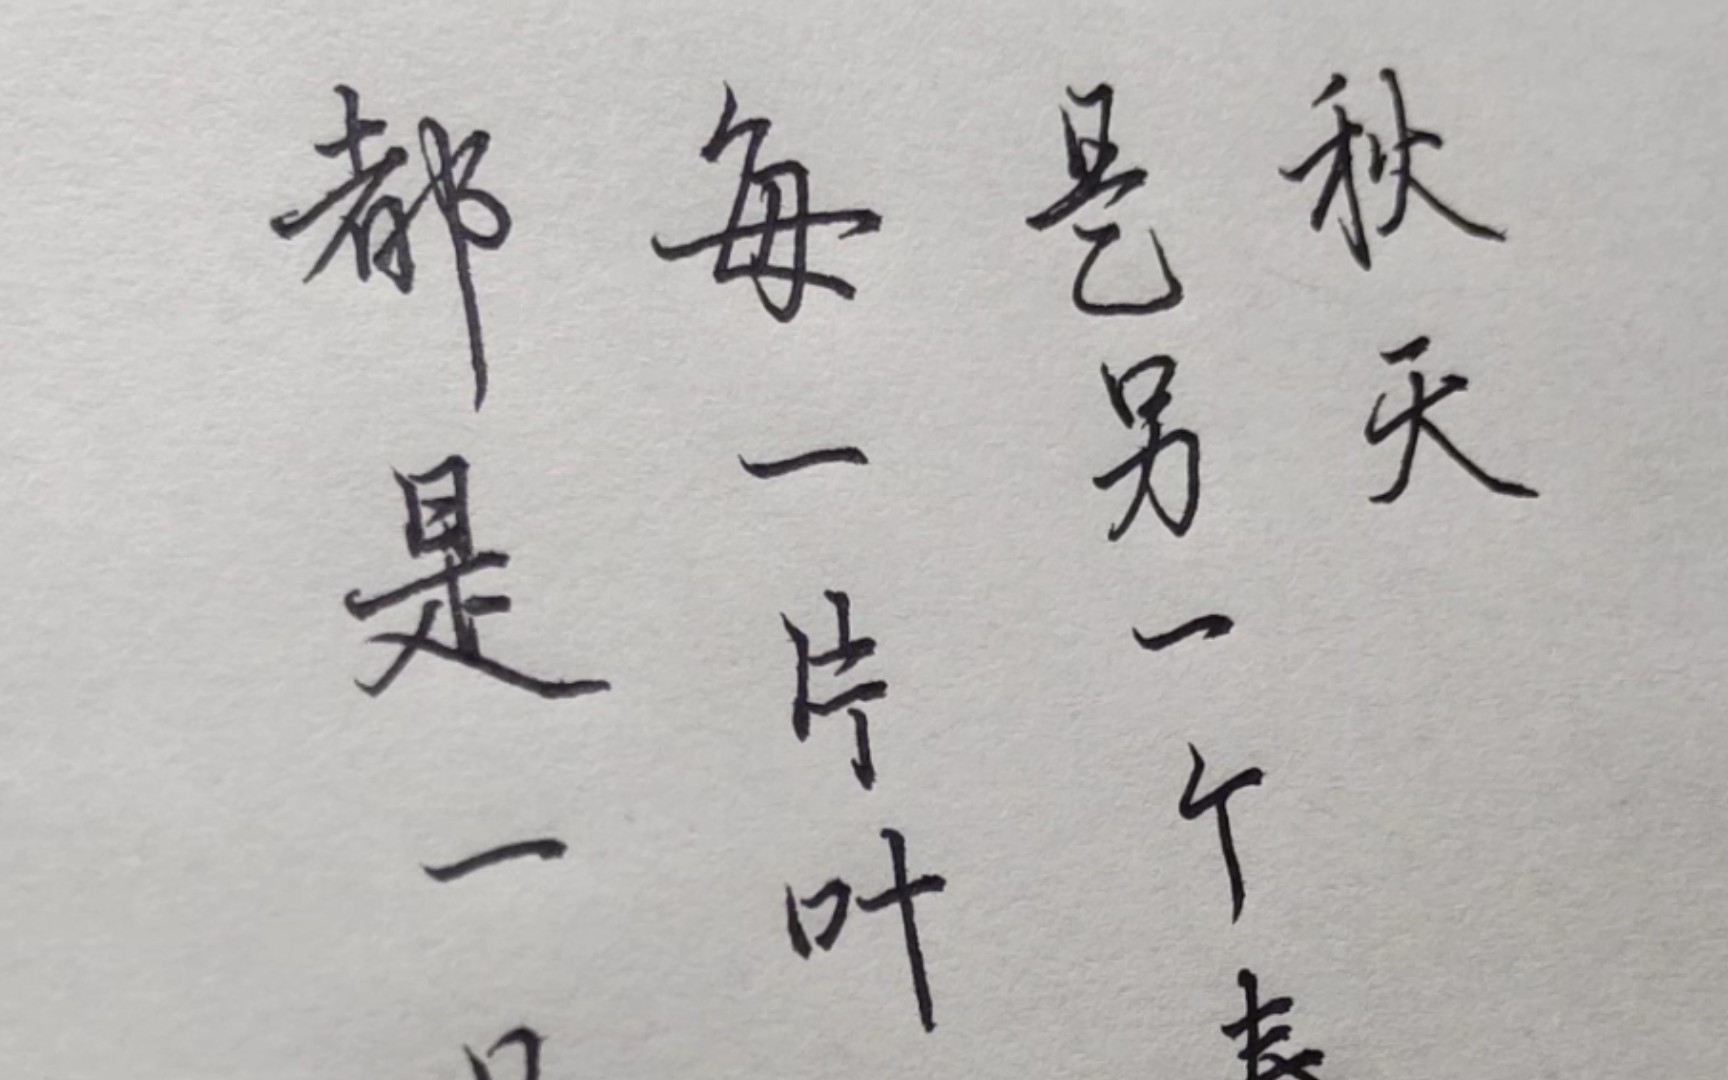 秋天
是另一个春
每一片叶
都是一